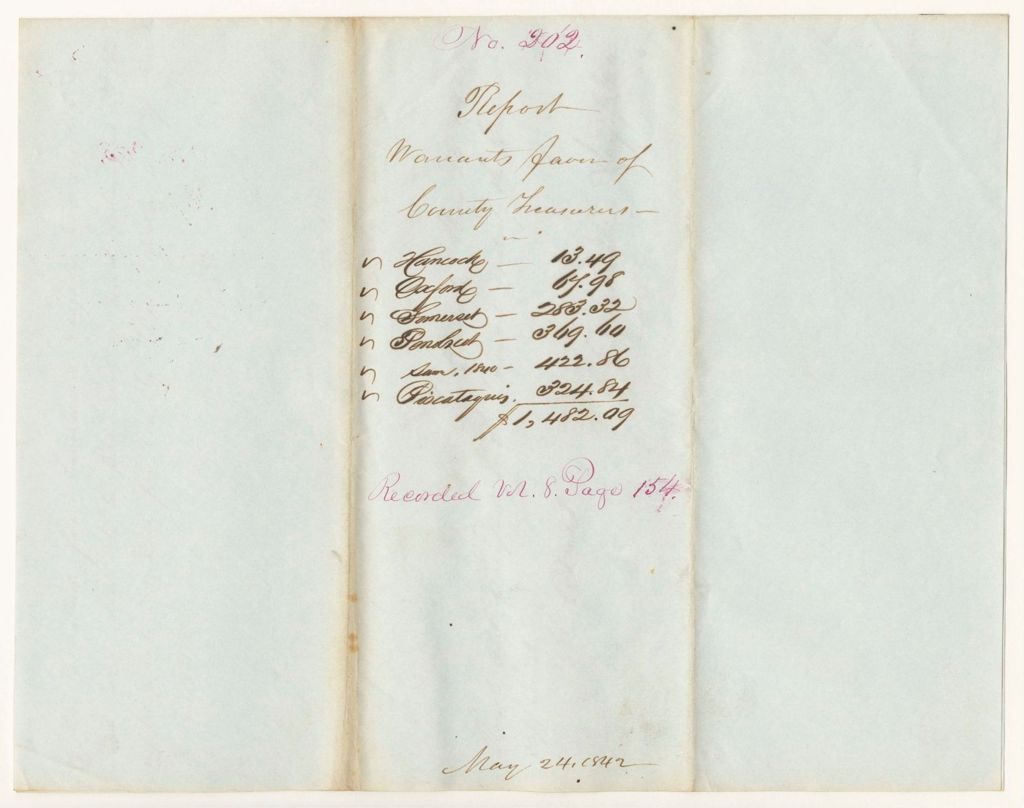 No. 202.
Report
Warrants favor of
County Treasurers —
✓ Hancock — 13.49
✓ Oxford — 67.98
✓ Somerset — 283.32
✓ Penobscot — 369.60
✓ Sam. 1840 - 422.86
✓ Piscataquis. 324.84
$1,482.09
Recorded Vol. 8. Page 154.
May 24. 1842